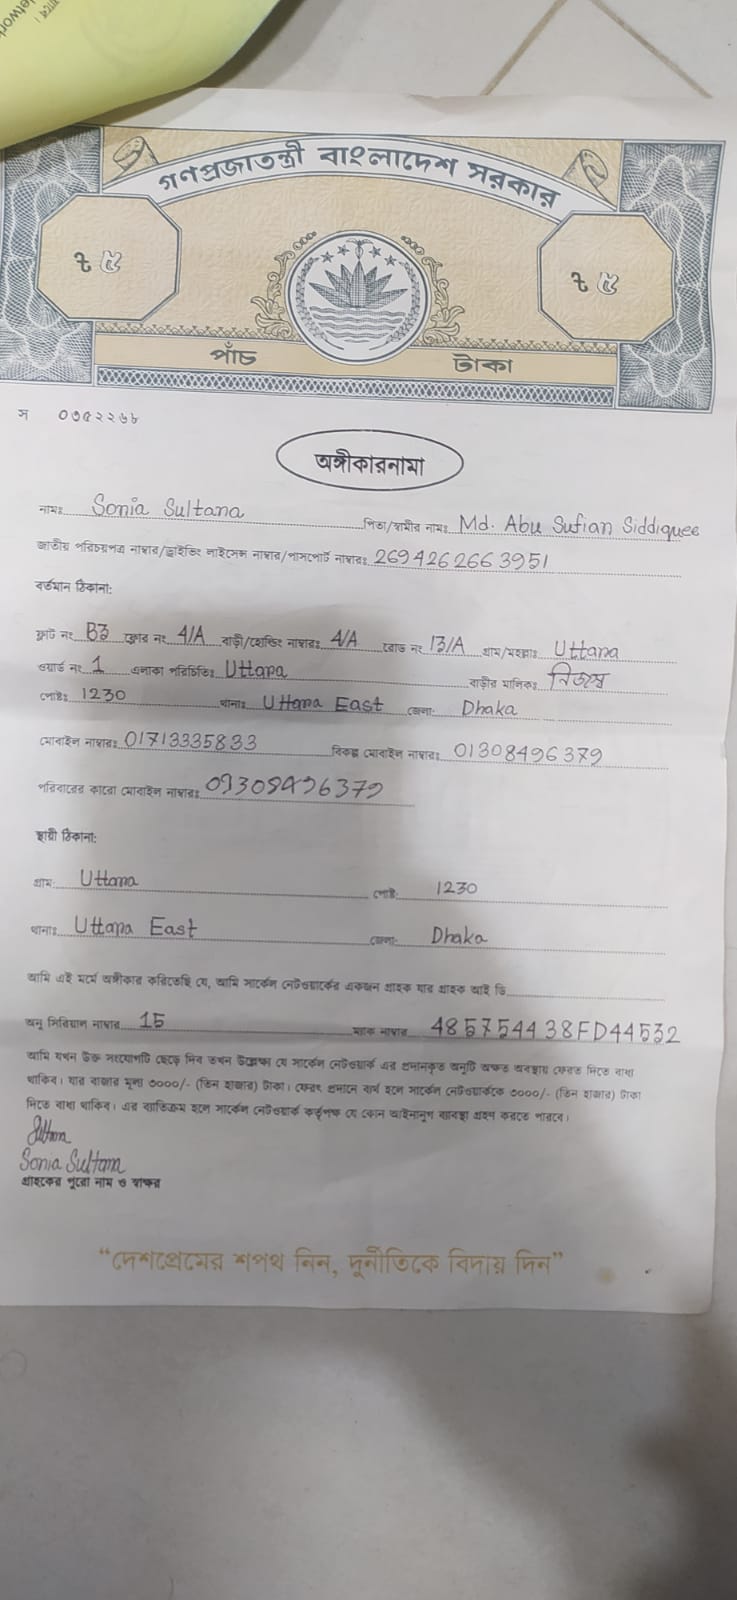 গণপ্রজাতন্ত্রী বাংলাদেশ সরকার
৳ ৫ ৳ ৫
পাঁচ টাকা
স ০৩৫২২৬৮
অঙ্গীকারনামা
নামঃ Sonia Sultana পিতা/স্বামীর নামঃ Md. Abu Sufian Siddiquee
জাতীয় পরিচয়পত্র নাম্বার/ড্রাইভিং লাইসেন্স নাম্বার/পাসপোর্ট নাম্বারঃ 2694262663951
বর্তমান ঠিকানা:
ফ্লাট নং B3 ফ্লোর নং 4/A বাড়ী/হোল্ডিং নাম্বারঃ 4/A রোড নং 13/A গ্রাম/মহল্লাঃ Uttara
ওয়ার্ড নং 1 এলাকা পরিচিতিঃ Uttara বাড়ীর মালিকঃ নিজস্ব
পোষ্টঃ 1230 থানাঃ Uttara East জেলা: Dhaka
মোবাইল নাম্বারঃ 01713335833 বিকল্প মোবাইল নাম্বারঃ 01308496379
পরিবারের কারো মোবাইল নাম্বারঃ 01308496379
স্থায়ী ঠিকানা:
গ্রাম: Uttara পোষ্ট: 1230
থানাঃ Uttara East জেলা: Dhaka
আমি এই মর্মে অঙ্গীকার করিতেছি যে, আমি সার্কেল নেটওয়ার্কের একজন গ্রাহক যার গ্রাহক আই ডি
অনু সিরিয়াল নাম্বার 15 ম্যাক নাম্বার 485754438FD44532
আমি যখন উক্ত সংযোগটি ছেড়ে দিব তখন উল্লেক্ষ্য যে সার্কেল নেটওয়ার্ক এর প্রদানকৃত অনুটি অক্ষত অবস্থায় ফেরত দিতে বাধ্য
থাকিব। যার বাজার মূল্য ৩০০০/- (তিন হাজার) টাকা। ফেরৎ প্রদানে ব্যর্থ হলে সার্কেল নেটওয়ার্ককে ৩০০০/- (তিন হাজার) টাকা
দিতে বাধ্য থাকিব। এর ব্যতিক্রম হলে সার্কেল নেটওয়ার্ক কর্তৃপক্ষ যে কোন আইনানুগ ব্যবস্থা গ্রহণ করতে পারবে।
Sonia Sultana
গ্রাহকের পুরো নাম ও স্বাক্ষর
“দেশপ্রেমের শপথ নিন, দুর্নীতিকে বিদায় দিন”